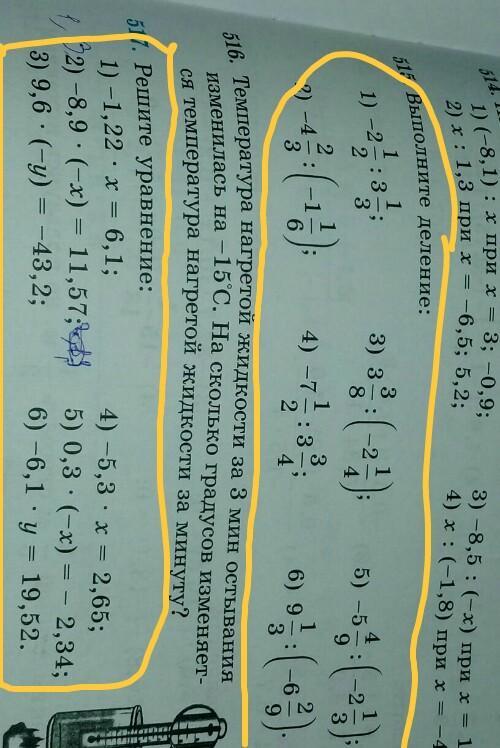 514.
1) (−8,1) : x при x = 3; −0,9;
2) x : 1,3 при x = −6,5; 5,2;
3) −8,5 : (−x) при x = 1
4) x : (−1,8) при x = −4
515. Выполните деление:
1) −2 1/2 : 3 1/3;
2) −4 2/3 : (−1 1/6);
3) 3 3/8 : (−2 1/4);
4) −7 1/2 : 3 3/4;
5) −5 4/9 : (−2 1/3);
6) 9 1/3 : (−6 2/9).
516. Температура нагретой жидкости за 3 мин остывания
изменилась на −15°С. На сколько градусов изменяет-
ся температура нагретой жидкости за минуту?
517. Решите уравнение:
1) −1,22 · x = 6,1;
2) −8,9 · (−x) = 11,57;
3) 9,6 · (−y) = −43,2;
4) −5,3 · x = 2,65;
5) 0,3 · (−x) = − 2,34;
6) −6,1 · y = 19,52.